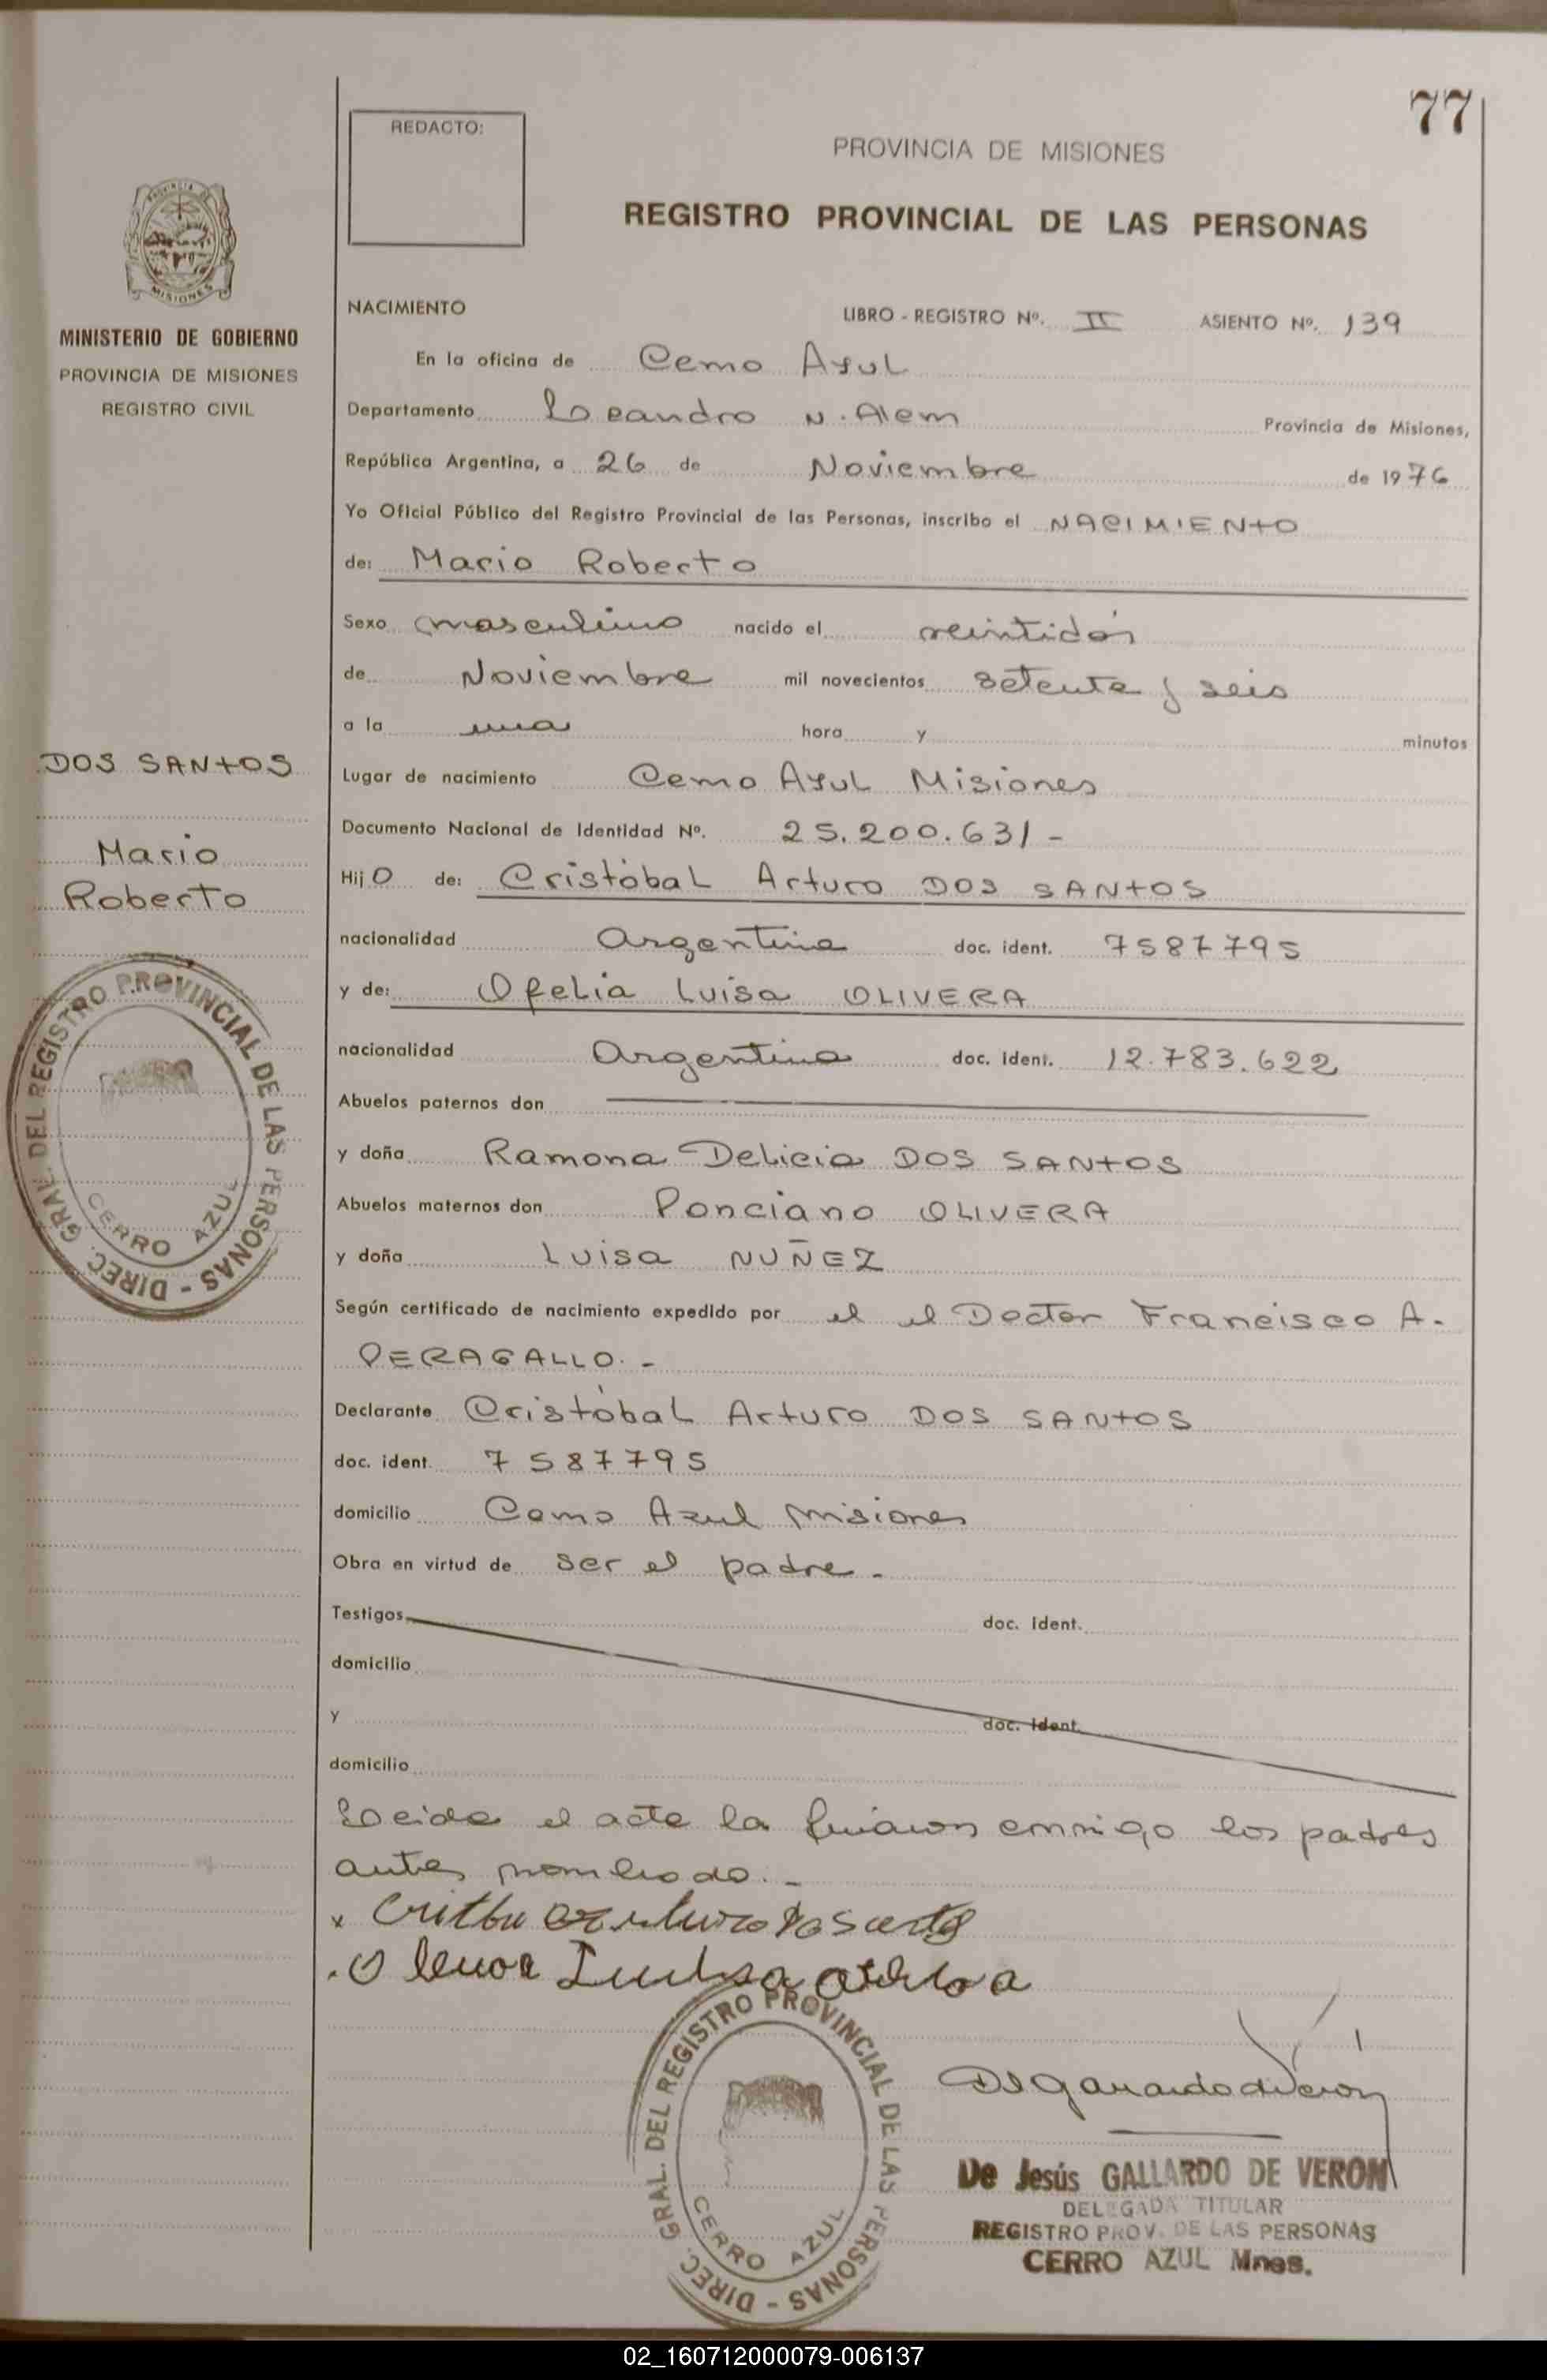 77
REDACTO:
PROVINCIA DE MISIONES
REGISTRO PROVINCIAL DE LAS PERSONAS
PROVINCIA DE
MISIONES
MINISTERIO DE GOBIERNO
PROVINCIA DE MISIONES
REGISTRO CIVIL
NACIMIENTO LIBRO - REGISTRO Nº. II ASIENTO Nº. 139
En la oficina de Cerro Azul
Departamento Leandro N. Alem Provincia de Misiones,
República Argentina, a 26 de Noviembre de 1976
Yo Oficial Público del Registro Provincial de las Personas, inscribo el NACIMIENTO
de: Mario Roberto
Sexo masculino nacido el veintidós
de Noviembre mil novecientos setenta y seis
a la una hora y minutos
DOS SANTOS
Lugar de nacimiento Cerro Azul Misiones
Documento Nacional de Identidad Nº. 25.200.631 -
Mario
Roberto
Hijo de: Cristóbal Arturo DOS SANTOS
nacionalidad Argentina doc. ident. 7587795
y de: Ofelia Luisa OLIVERA
nacionalidad Argentina doc. ident. 12.783.622
Abuelos paternos don
y doña Ramona Delicia DOS SANTOS
Abuelos maternos don Ponciano OLIVERA
y doña Luisa NUÑEZ
DIREC. GRAL. DEL REGISTRO PROVINCIAL DE LAS PERSONAS -
CERRO AZUL
Según certificado de nacimiento expedido por el el Doctor Francisco A.
PERAGALLO. -
Declarante Cristóbal Arturo DOS SANTOS
doc. ident. 7587795
domicilio Cerro Azul Misiones
Obra en virtud de ser el padre -
Testigos doc. ident.
domicilio
y doc. ident.
domicilio
Leída el acta la firmaron conmigo los padres
antes nombrado. -
DIREC. GRAL. DEL REGISTRO PROVINCIAL DE LAS PERSONAS -
CERRO AZUL
De Jesús GALLARDO DE VERON
DELEGADA TITULAR
REGISTRO PROV. DE LAS PERSONAS
CERRO AZUL Mnes.
02_160712000079-006137